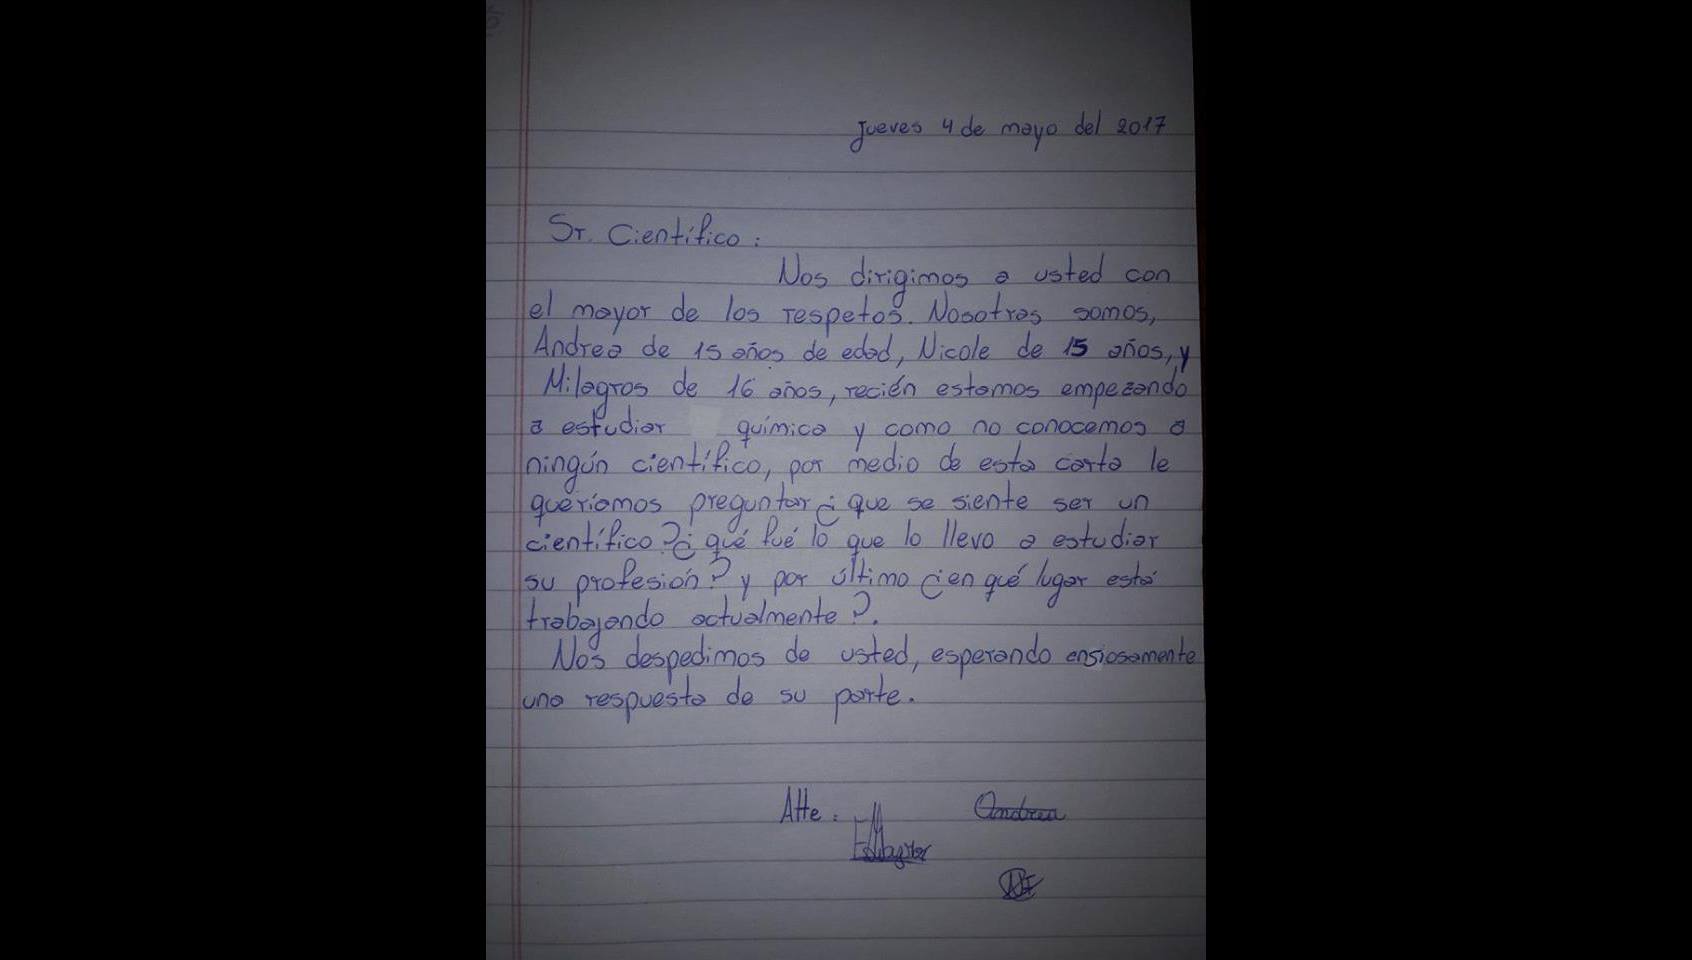 Jueves 4 de mayo del 2017
Sr. Científico:
Nos dirigimos a usted con
el mayor de los respetos. Nosotras somos,
Andrea de 15 años de edad, Nicole de 15 años, y
Milagros de 16 años, recién estamos empezando
a estudiar química y como no conocemos a
ningún científico, por medio de esta carta le
queríamos preguntar ¿que se siente ser un
científico? ¿qué fué lo que lo llevo a estudiar
su profesión? y por último ¿en qué lugar está
trabajando actualmente?.
Nos despedimos de usted, esperando ansiosamente
una respuesta de su parte.
Atte: Andrea
Milagros